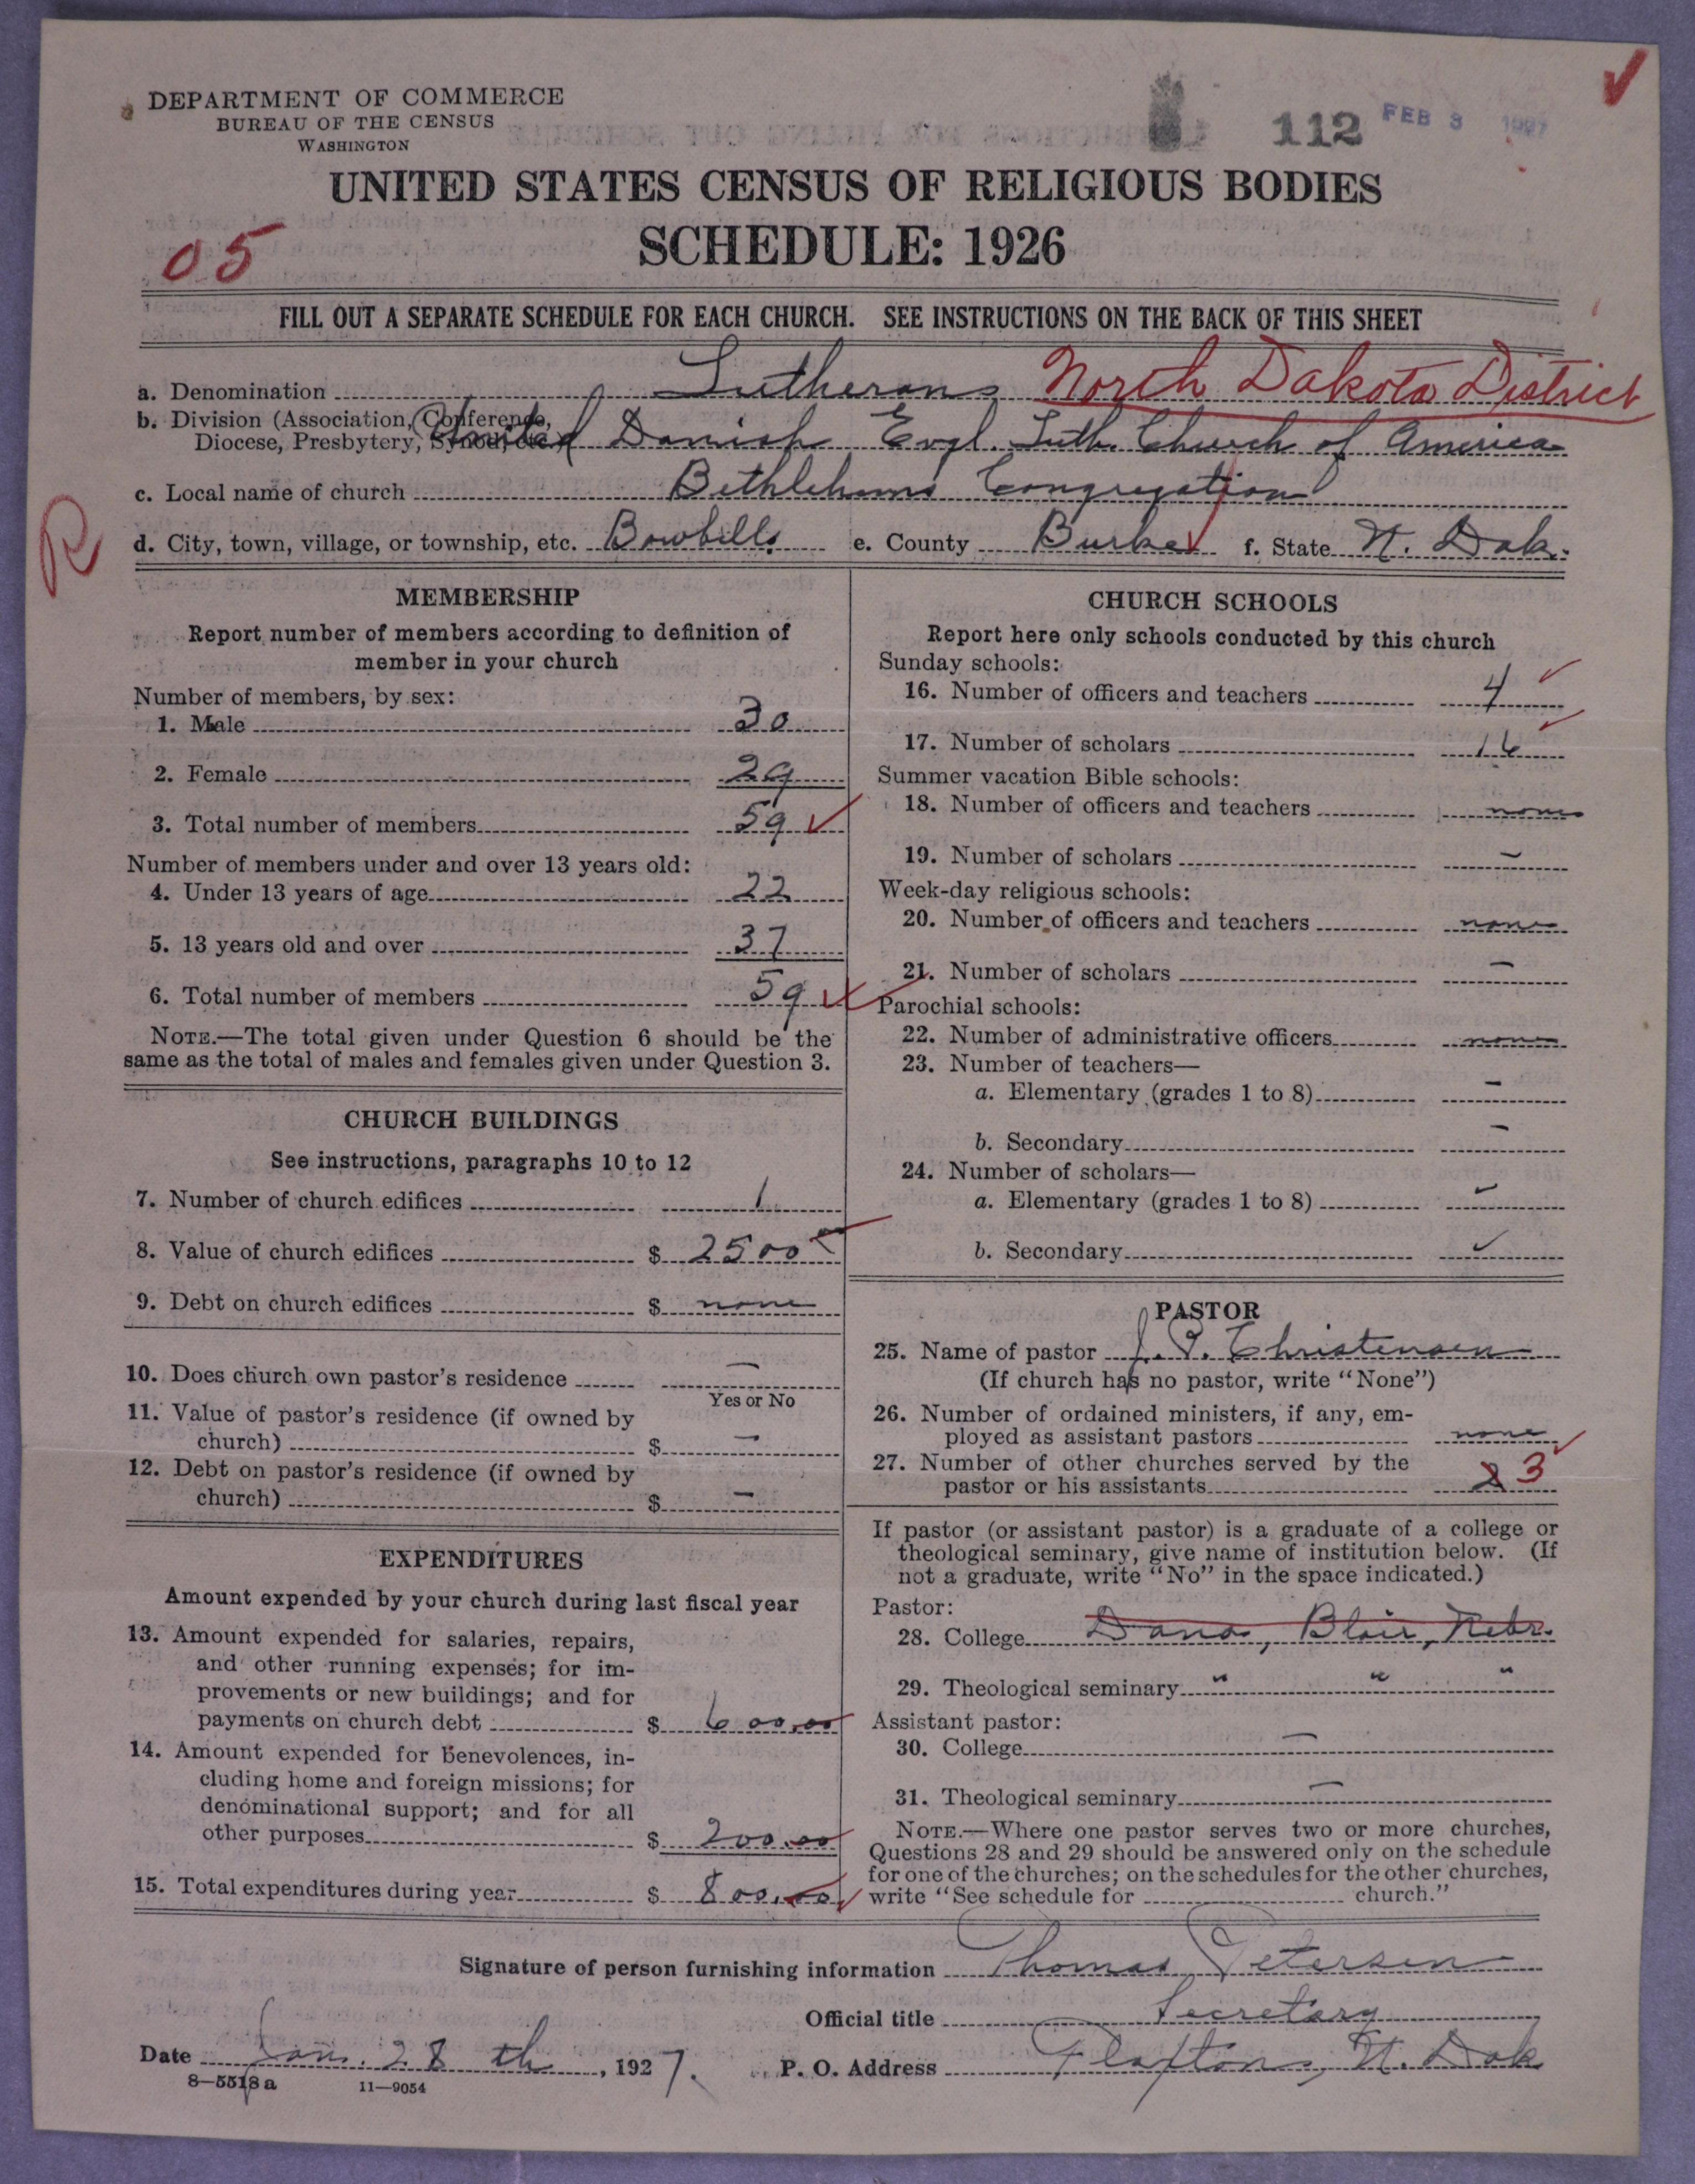 DEPARTMENT OF COMMERCE
BUREAU OF THE CENSUS
WASHINGTON
112 FEB 3 1927
UNITED STATES CENSUS OF RELIGIOUS BODIES
SCHEDULE: 1926
05
FILL OUT A SEPARATE SCHEDULE FOR EACH CHURCH. SEE INSTRUCTIONS ON THE BACK OF THIS SHEET
a. Denomination Lutherans North Dakota District
b. Division (Association, Conference,
Diocese, Presbytery, Synod, etc.) United Danish Evgl. Luth. Church of America
c. Local name of church Bethlehems Congregation
R
d. City, town, village, or township, etc. Bowbells e. County Burke f. State N. Dak.
MEMBERSHIP
Report number of members according to definition of
member in your church
Number of members, by sex:
1. Male 30
2. Female 29
3. Total number of members 59
Number of members under and over 13 years old:
4. Under 13 years of age 22
5. 13 years old and over 37
6. Total number of members 59
NOTE.—The total given under Question 6 should be the
same as the total of males and females given under Question 3.
CHURCH BUILDINGS
See instructions, paragraphs 10 to 12
7. Number of church edifices 1
8. Value of church edifices $ 2500
9. Debt on church edifices $ none
10. Does church own pastor's residence —
Yes or No
11. Value of pastor's residence (if owned by
church) $ —
12. Debt on pastor's residence (if owned by
church) $ —
EXPENDITURES
Amount expended by your church during last fiscal year
13. Amount expended for salaries, repairs,
and other running expenses; for im-
provements or new buildings; and for
payments on church debt $ 600.00
14. Amount expended for benevolences, in-
cluding home and foreign missions; for
denominational support; and for all
other purposes $ 200.00
15. Total expenditures during year $ 800.00
CHURCH SCHOOLS
Report here only schools conducted by this church
Sunday schools:
16. Number of officers and teachers 4
17. Number of scholars 16
Summer vacation Bible schools:
18. Number of officers and teachers none
19. Number of scholars —
Week-day religious schools:
20. Number of officers and teachers none
21. Number of scholars —
Parochial schools:
22. Number of administrative officers none
23. Number of teachers—
a. Elementary (grades 1 to 8) —
b. Secondary —
24. Number of scholars—
a. Elementary (grades 1 to 8) —
b. Secondary —
PASTOR
25. Name of pastor J. P. Christensen
(If church has no pastor, write "None")
26. Number of ordained ministers, if any, em-
ployed as assistant pastors none
27. Number of other churches served by the
pastor or his assistants 3
If pastor (or assistant pastor) is a graduate of a college or
theological seminary, give name of institution below. (If
not a graduate, write "No" in the space indicated.)
Pastor:
28. College Dana, Blair, Nebr.
29. Theological seminary " " "
Assistant pastor:
30. College —
31. Theological seminary —
NOTE.—Where one pastor serves two or more churches,
Questions 28 and 29 should be answered only on the schedule
for one of the churches; on the schedules for the other churches,
write "See schedule for church."
Signature of person furnishing information Thomas Petersen
Official title Secretary
Date Jan. 28 th, 1927. P. O. Address Flaxton, N. Dak
8—5518 a 11—9054